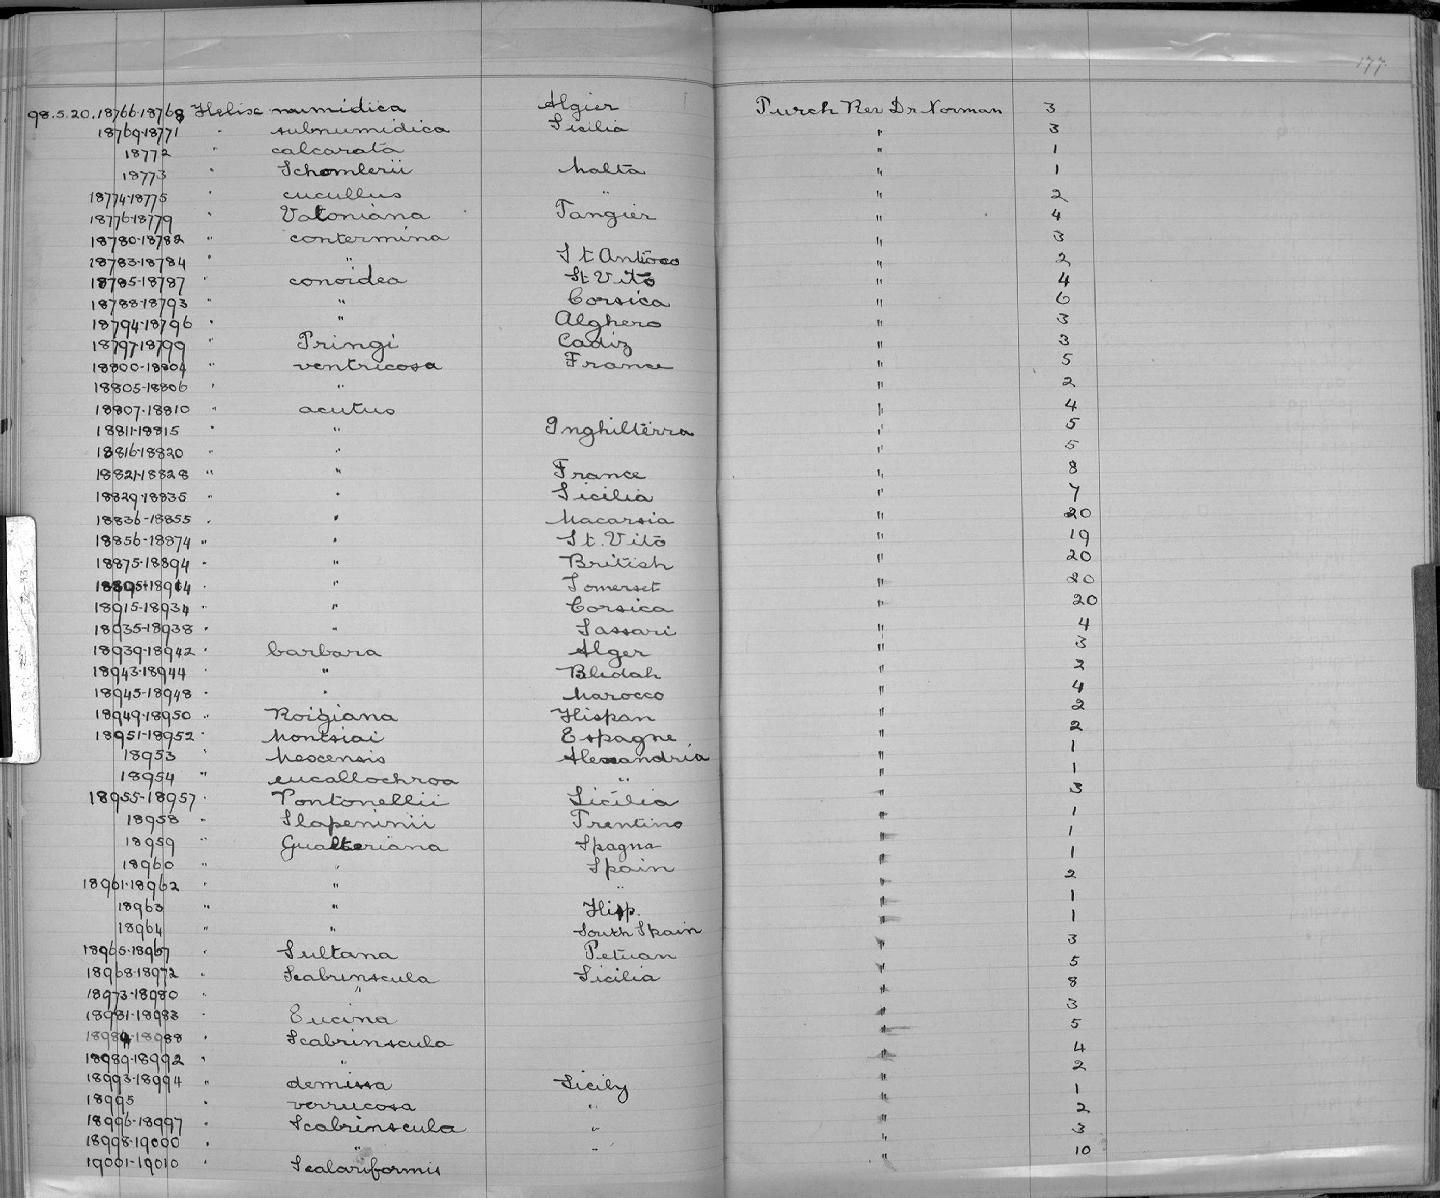 177
98.5.20.18766-18768 Helix numidica Algier Purch Rev Dr Norman 3
18769-18771 " subnumidica Sicilia " 3
18772 " calcarata " 1
18773 " Schomlerii Malta " 1
18774-18775 cucullus " " 2
18776-18779 " Vatoniana Tangier " 4
18780-18782 " contermina " 3
18783-18784 " " St Antioco " 2
18785-18787 " conoidea St Vito " 4
18788-18793 " " Corsica " 6
18794-18796 " " Alghero " 3
18797-18799 " Pringi Cadiz " 3
18800-18804 " ventricosa France " 5
18805-18806 " " " 2
18807-18810 " acutus " 4
18811-18815 " " Inghilterra " 5
18816-18820 " " " 5
18821-18828 " " France " 8
18829-18835 " " Sicilia " 7
18836-18855 " " Macarsia " 20
18856-18874 " " St. Vito " 19
18875-18894 " " British " 20
18895-18914 " Somerset " 20
18915-18934 " " Corsica " 20
18935-18938 " " Sassari " 4
18939-18942 " barbara Alger " 3
18943-18944 " " Blidah " 2
18945-18948 " " Marocco " 4
18949-18950 " Roigiana Hispan " 2
18951-18952 " Montsiai Espagne " 2
18953 " Meocensis Alexandria " 1
18954 " eucallochroa " " 1
18955-18957 " Pontonellii Sicilia " 3
18958 " Slapeninii Trentino " 1
18959 " Gualteriana Spagna " 1
18960 " " Spain " 1
18961-18962 " " " " 2
18963 " " Hisp. " 1
18964 " " South Spain " 1
18965-18967 " Sultana Petuan " 3
18968-18972 " Scabrinscula Sicilia " 5
18973-18980 " " " 8
18981-18983 " Eucina " 3
18984-18988 " Scabrinscula " 5
18989-18992 " " " 4
18993-18994 " demissa Sicily " 2
18995 " verrucosa " " 1
18996-18997 " Scabrinscula " " 2
18998-19000 " " " " 3
19001-19010 " Scalariformis " 10